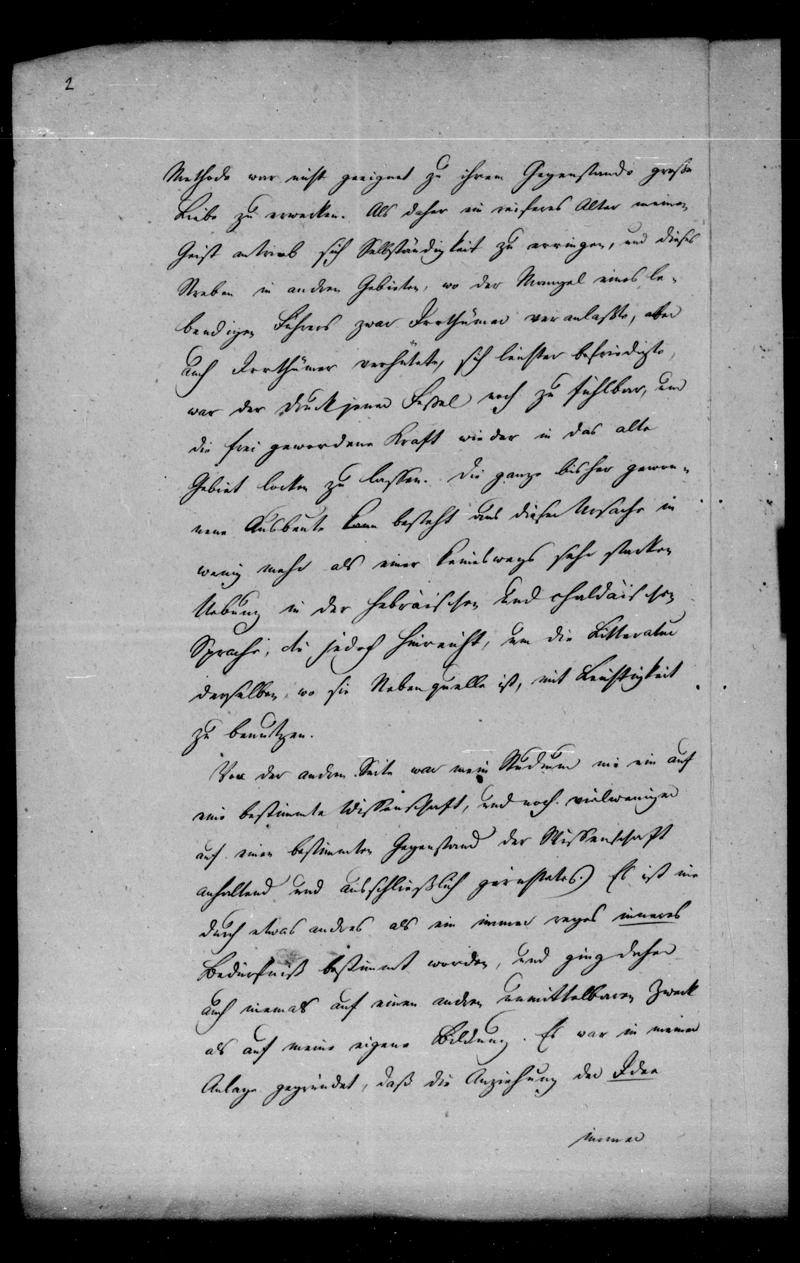 2
Methode war nicht geeignet zu ihrem Gegenstande große
Liebe zu erwecken. Als daher ein reiferes Alter meinen
Geist antrieb sich Selbständigkeit zu erringen, und dieses
Streben in andern Gebieten, wo der Mangel eines le-
bendigen Führers zwar Irrthümer veranlaßte, aber
auch Irrthümer verhütete, sich leichter befriedigte,
war der Druck jener Feßel noch zu fühlbar, um
die frei gewordene Kraft wieder in das alte
Gebiet locken zu lassen. Die ganze bisher gewon-
nene Ausbeute besteht aus dieser Ursache in
wenig mehr als einer keineswegs sehr starken
Uebung in der hebräischen und chaldäischen
Sprache, die jedoch hinreicht, um die Litteratur
derselben, wo sie Nebenquelle ist, mit Leichtigkeit
zu benutzen.
Von der andern Seite war mein Studium nie ein auf
eine bestimmte Wissenschaft, und noch vielweniger
auf einen bestimmten Gegenstand der Wissenschaft
anhaltend und ausschließlich gerichtetes. Es ist nie
durch etwas andres als ein immer reges inneres
Bedürfniß bestimmt worden, und ging daher
auch niemals auf einen andern unmittelbaren Zweck
als auf meine eigene Bildung. Es war in meiner
Anlage gegründet, daß die Anziehung der Idee
immer